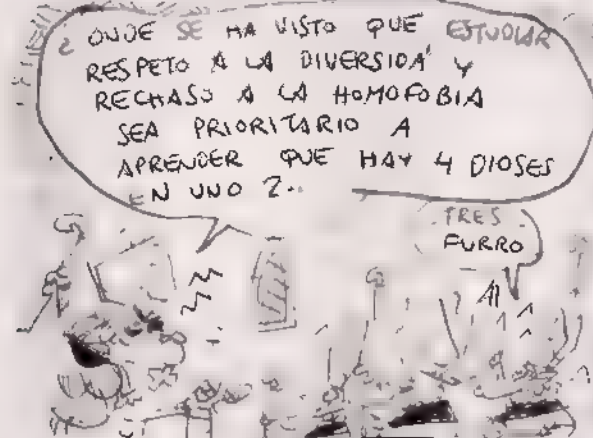 ¿ ONDE SE HA VISTO QUE ESTUDIAR
RESPETO A LA DIVERSIDÁ Y
RECHASO A LA HOMOFOBIA
SEA PRIORITARIO A
APRENDER QUE HAY 4 DIOSES
EN UNO ?..
TRES
FURRO